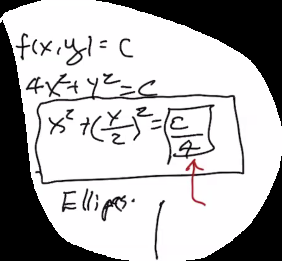 f(x,y) = C
4x²+y²=C
x²+(y/2)²=C/4
Ellipses.